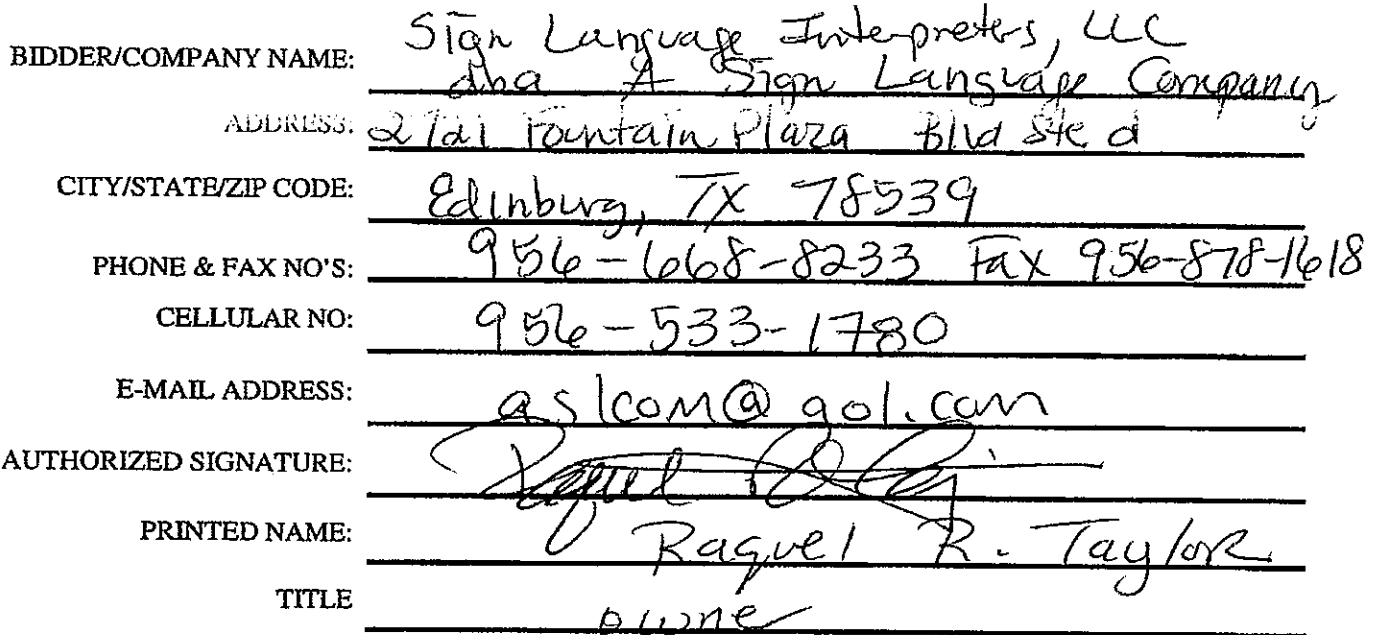 BIDDER/COMPANY NAME: Sign Language Interpreters, LLC
dba A Sign Language Company
ADDRESS: 2721 Fountain Plaza Blvd Ste d
CITY/STATE/ZIP CODE: Edinburg, TX 78539
PHONE & FAX NO'S: 956-668-8233 Fax 956-878-1618
CELLULAR NO: 956-533-1780
E-MAIL ADDRESS: aslcom@aol.com
AUTHORIZED SIGNATURE: Raquel
PRINTED NAME: Raquel R. Taylor
TITLE owner